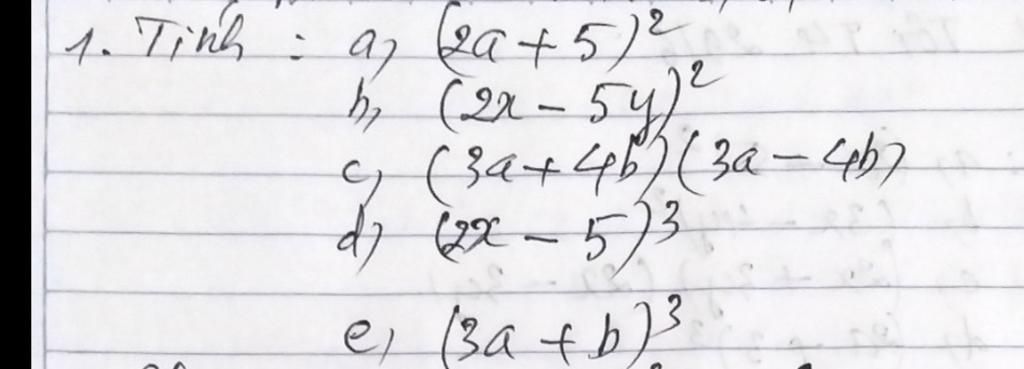 1. Tính : a, (2a + 5)²
b, (2x - 5y)²
c, (3a + 4b) (3a - 4b)
d, (2x - 5)³
e, (3a + b)³